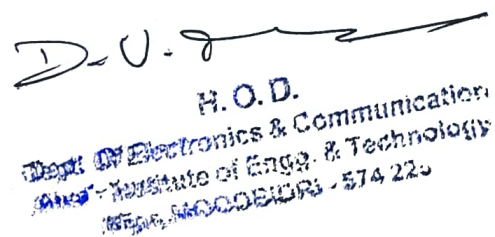 D. V.
H. O. D.
Dept. Of Electronics & Communication
Institute of Engg. & Technology
MOODBIDRI - 574 225